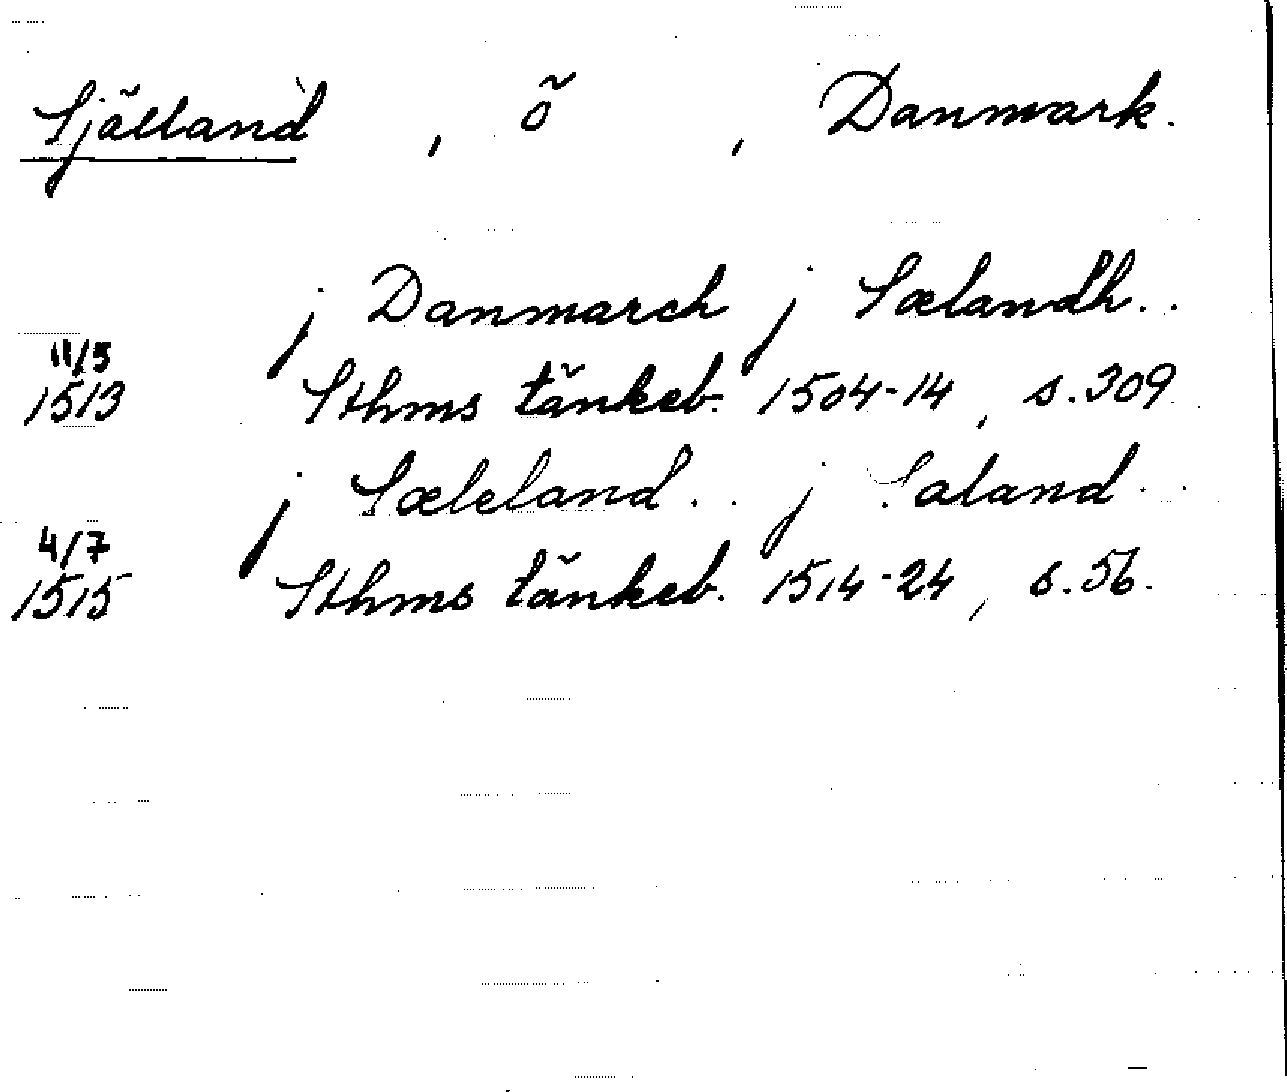 Själland, ö, Danmark.
j Danmarch j Sælandh..
11/5
1513 Sthms tänkeb. 1504-14, s.309
j Sæleland.. j Saland..
4/7
1515 Sthms tänkeb. 1514-24, s.56.